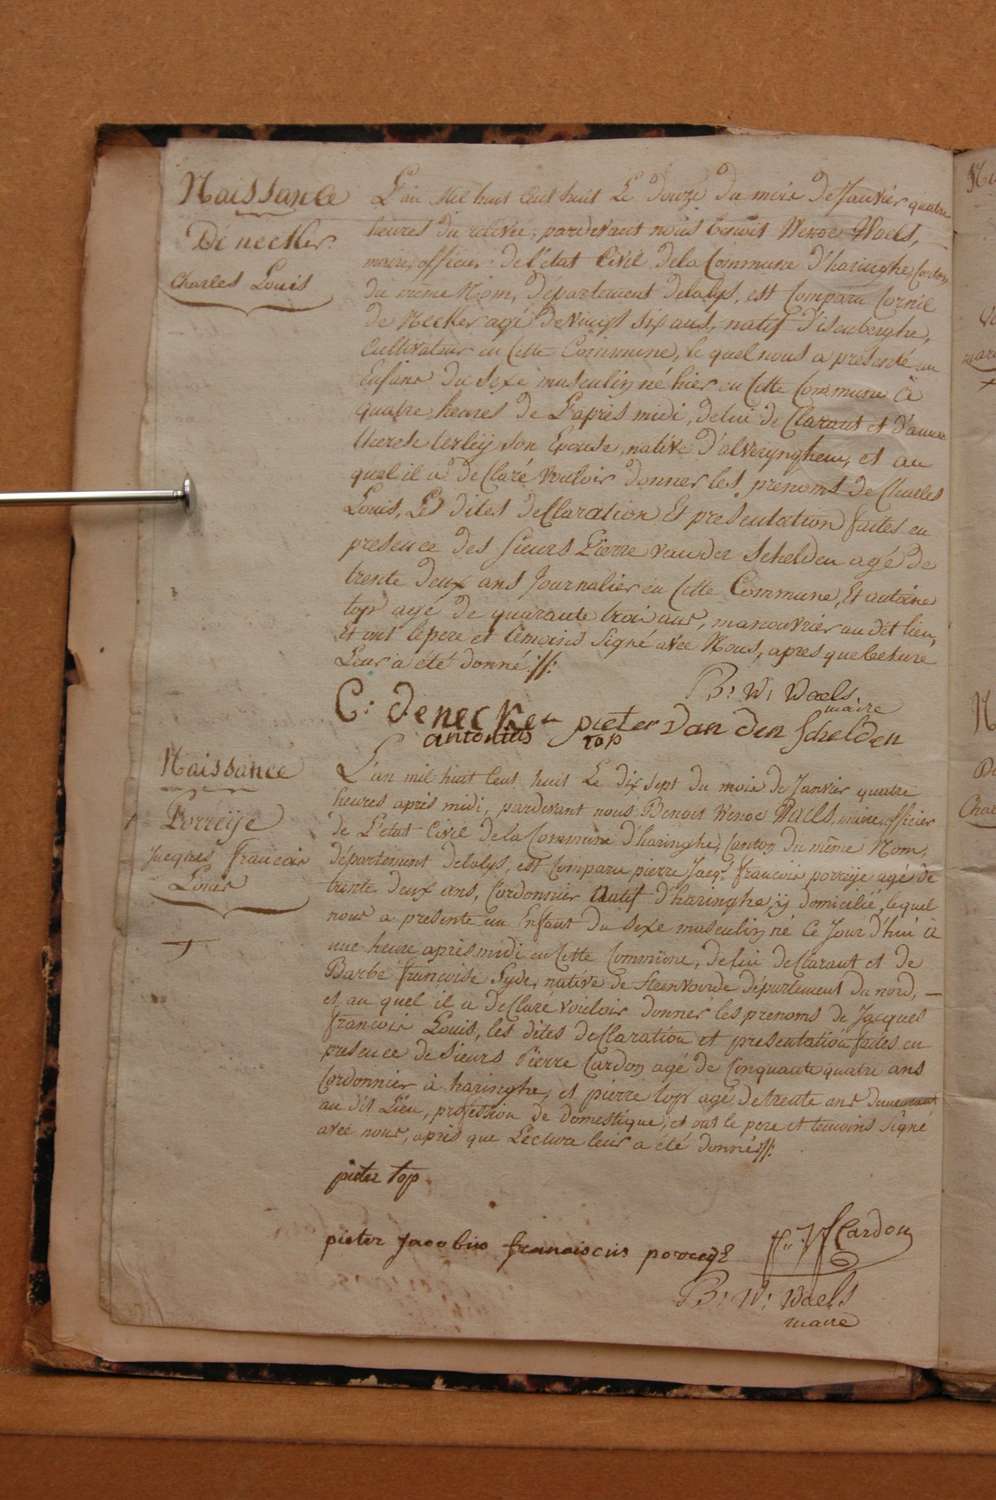 Naissance
Dénecker
Charles Louis
L'an Mil huit Cent huit Le douze du mois de Janvier quatre
heures du rélevée, pardevant nous Benoit Wenoc Waels,
maire, officier de l'état Civil dela Commune d'haringhe, Canton
du même Nom, département delalys, est Comparu Cornil
de Necker agé de vingt six ans, natif d'isenberghe,
Cultivateur en Cette Commune, le quel nous a présenté un
Enfant du Sexe masculin, né hier en Cette Commune à
quatre heures de L'après midi, de lui de Clarant et d'anne
therese Verleij son Epouse, native d'alverynghem, et au
quel il a de Claré vouloir donner les prénoms de Charles
Louis, Les dites de Claration Et presentation faites en
presence des sieurs Pierre vander Schelden agé de
trente deux ans Journalier en Cette Commune, Et antoine
top agé de quarante trois ans, manouvrier au dit lieu,
Et ont le pere et témoins signé avec Nous, apres que lecture
Leur a été donné ://:
B: W: Waels
maire
C: denecker pieter Van den Schelden
antonius top
Naissance
Porreije
Jacques francois
Louis
L'an mil huit Cent huit Le dix sept du mois de Janvier quatre
heures après midi, pardevant nous Benoit Wenoc Waels, maire, officier
de L'etat Civil dela Commune d'haringhe, Canton du même Nom,
département delalys, est Comparu pierre Jacq: francois porreije agé de
trente deux ans, Cordonnier Natif d'haringhe, ij domicilié, le quel
nous a presenté un Enfant du Sexe masculin, né Ce Jour d'hui à
une heure après midi en Cette Commune, de lui de Clarant et de
Barbe francoise Syde, native de Steenvoorde département du nord, —
et au quel il a de Claré vouloir donner les prenoms de Jacques
francois Louis, les dites de Claration et presentation faites en
presence de Sieurs Pierre Cardon agé de Cinquante quatre ans
Cordonnier à haringhe, et pierre top agé de trente ans
au dit Lieu, profession de domestique, et ont le pere et temoins signé
avec nous, après que Lecture leur a été donné ://:
pieter top
pieter Jacobus franciscus porreye Cardon
B: W: Waels
maire